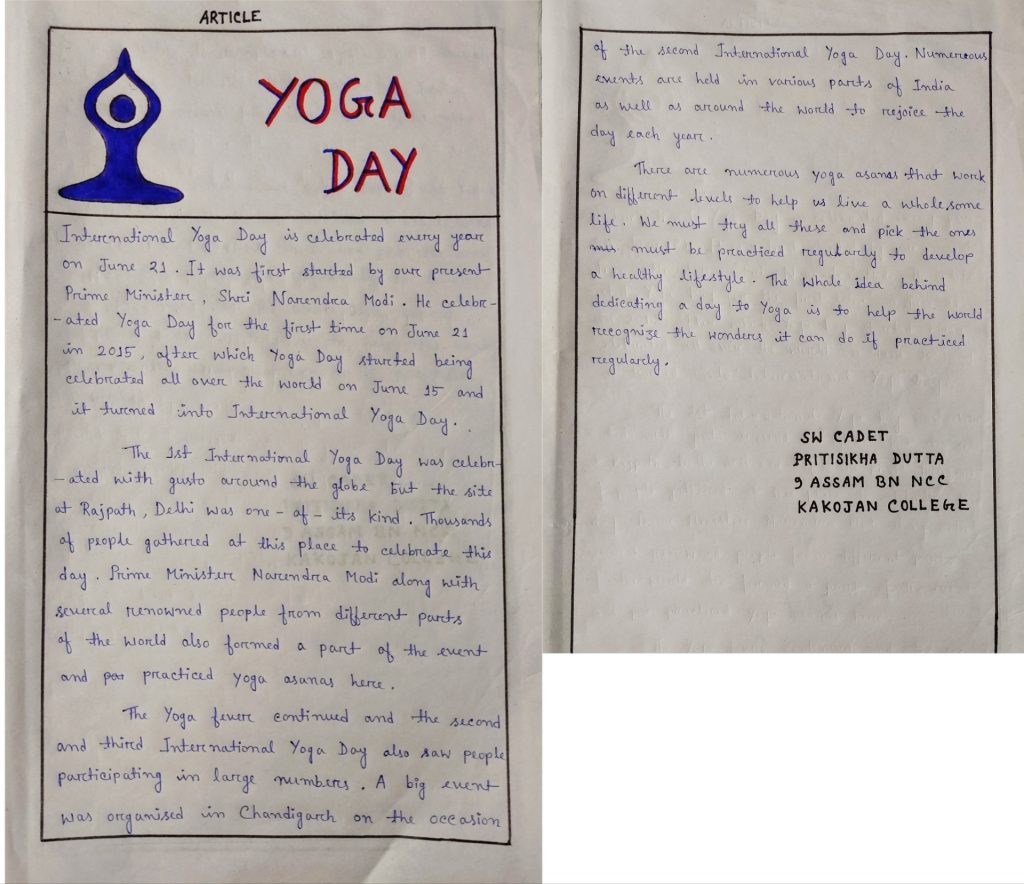 ARTICLE
YOGA
DAY
International Yoga Day is celebrated every year
on June 21. It was first started by our present
Prime Minister, Shri Narendra Modi. He celebr-
-ated Yoga Day for the first time on June 21
in 2015, after which Yoga Day started being
celebrated all over the world on June 15 and
it turned into International Yoga Day.
The 1st International Yoga Day was celebr-
-ated with gusto around the globe but the site
at Rajpath, Delhi was one-of-its kind. Thousands
of people gathered at this place to celebrate this
day. Prime Minister Narendra Modi along with
several renowned people from different parts
of the world also formed a part of the event
and par practiced yoga asanas here.
The Yoga fever continued and the second
and third International Yoga Day also saw people
participating in large numbers. A big event
was organised in Chandigarh on the occasion
of the second International Yoga Day. Numerous
events are held in various parts of India
as well as around the world to rejoice the
day each year.
There are numerous yoga asanas that work
on different levels to help us live a wholesome
life. We must try all these and pick the ones
must be practiced regularly to develop
a healthy lifestyle. The whole idea behind
dedicating a day to Yoga is to help the world
recognize the wonders it can do if practiced
regularly.
SW CADET
PRITISIKHA DUTTA
9 ASSAM BN NCC
KAKOJAN COLLEGE